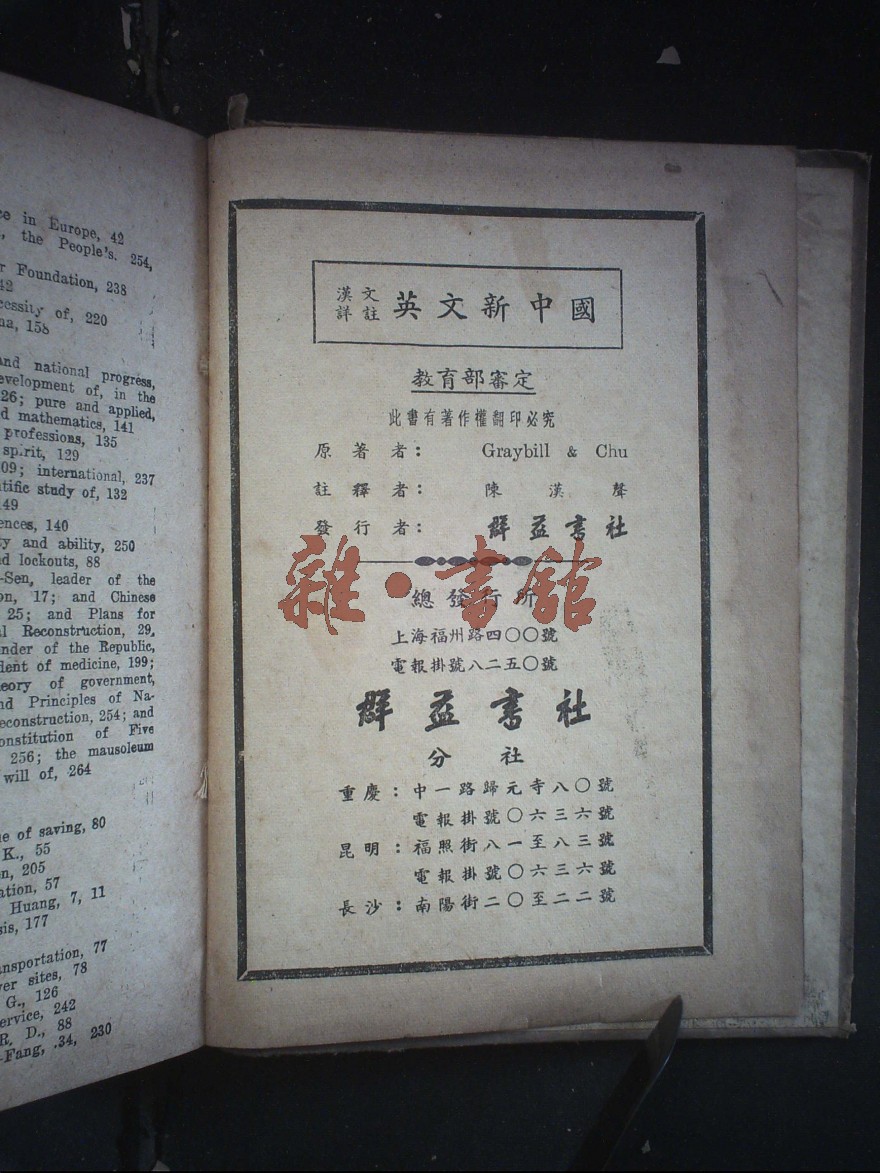 ce in Europe, 42
the People's. 254,
r Foundation, 238
42
cessity of, 220
na, 158
and national progress,
evelopment of, in the
26; pure and applied,
d mathematics, 141
professions, 135
spirit, 129
09; international, 237
tific study of, 132
49
ences, 140
y and ability, 250
nd lockouts, 88
-Sen, leader of the
on, 17; and Chinese
25; and Plans for
l Reconstruction, 29,
nder of the Republic,
dent of medicine, 199;
eory of government,
nd Principles of Na-
econstruction, 254; and
onstitution of Five
256; the mausoleum
will of, 264
e of saving, 80
K., 55
on, 205
ation, 57
Huang, 7, 11
sis, 177
nsportation, 77
ver sites, 78
G., 126
ervice, 242
R. D., 88
-Fang, 34, 230
漢文詳註 英文新中國
教育部審定
此書有著作權翻印必究
原著者： Graybill & Chu
註釋者： 陳漢聲
發行者： 群益書社
雜·書館
總發行所
上海福州路四〇〇號
電報掛號八二五〇號
群益書社
分社
重慶：中一路歸元寺八〇號
電報掛號〇六三六號
昆明：福照街八一至八三號
電報掛號〇六三六號
長沙：南陽街二〇至二二號